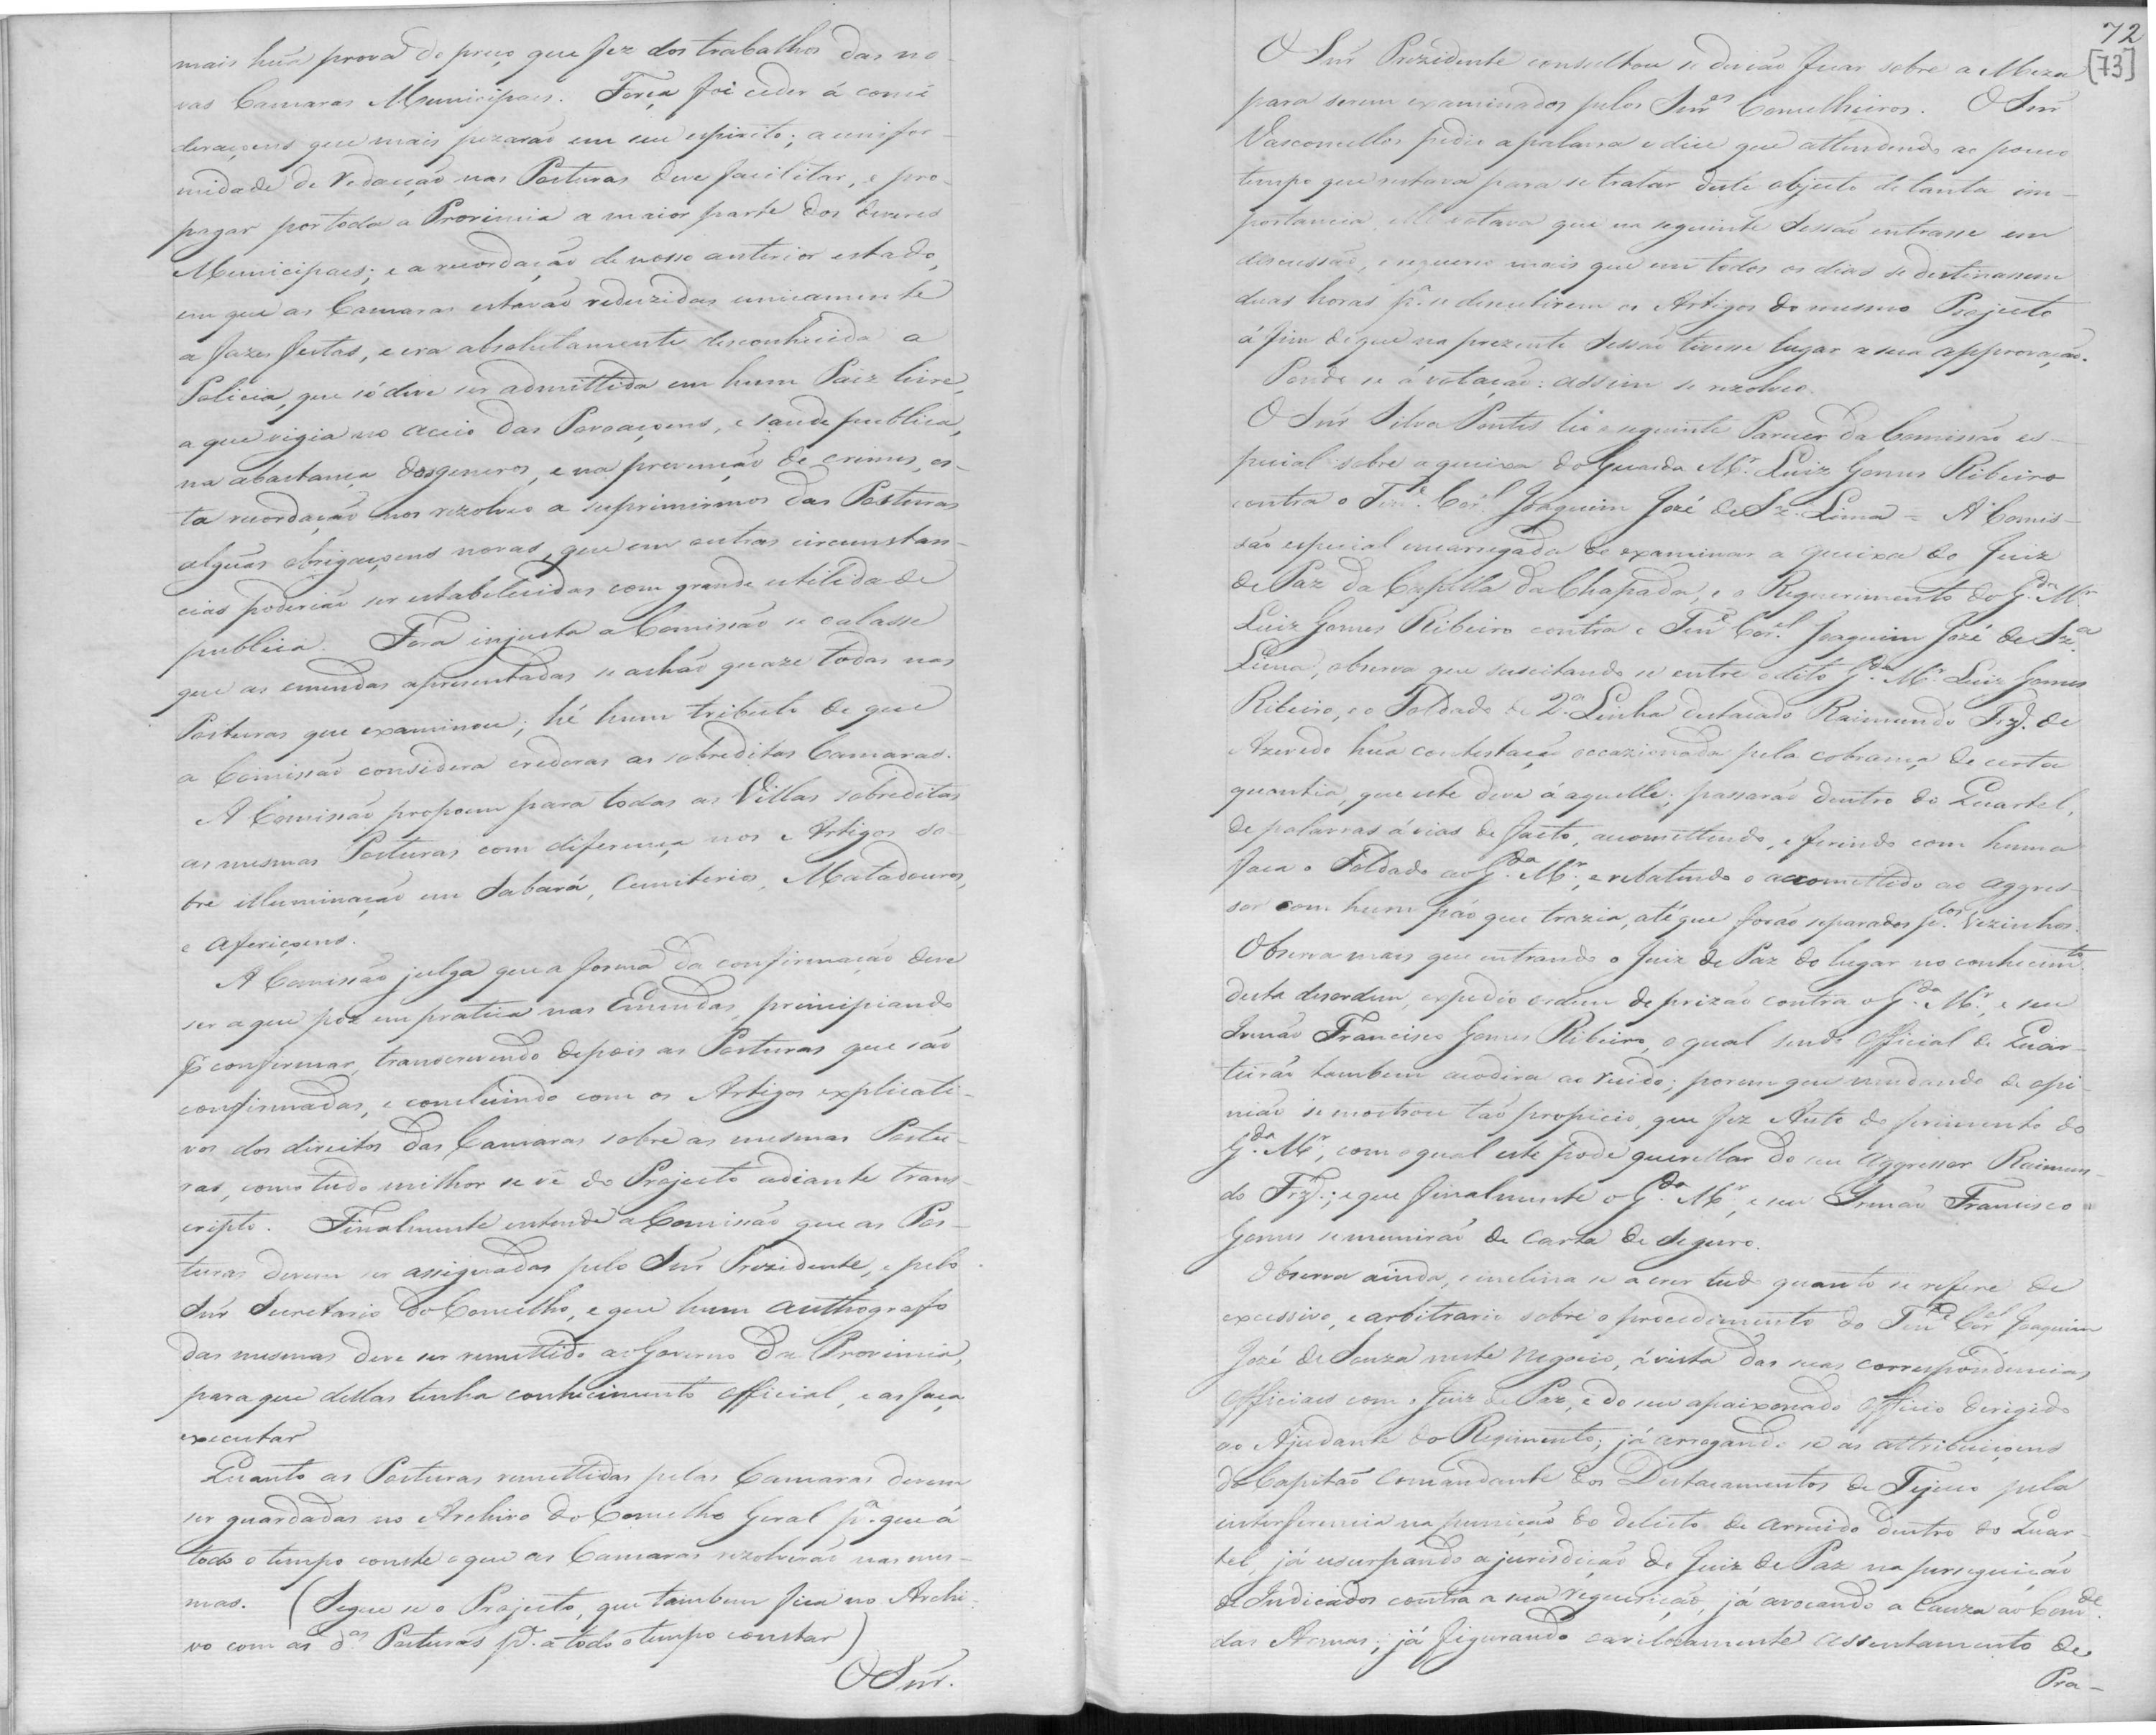 mais huã prova do preço que fez dos trabalhos das no-
vas Camaras Municipaes. Força foi ceder á consi-
deraçoens que mais pezarão em seu espirito; a unifor-
midade de redacção nas Posturas deve facilitar, e pro-
pagar por toda a Provincia a maior parte dos deveres
Municipaes; e a recordação de nosso anterior estado,
em que as Camaras estavão reduzidas unicamente
a fazer festas, e era absolutamente desconhecida a
Policia, que só deve ser admittida em hum Paiz livre,
a que vigia no aceio das Povoaçoens, e saude publica,
na abastança dos generos, e na prevenção de crimes, es-
ta recordação nos rezolveo a suprimirmos das Posturas
alguãs obrigaçoens novas, que em outras circunstan-
cias poderião ser estabelecidas com grande utilidade
publica. Fora injusta a Comissão se calasse
que as emendas apresentadas se achão quaze todas nas
Posturas que examinou; hé hum tributo de que
a Comissão considera credoras as sobreditas Camaras.
A Comissão propoem para todas as Villas sobreditas
as mesmas Posturas com diferença nos Artigos so-
bre illuminação em Sabará, Cemiterios, Matadouros,
e Afericoens.
A Comissão julga que a forma da confirmação deve
ser a que poz em pratica nas Emendas, principiando
p confirmar, transcrevendo depois as Posturas que são
confirmadas, e concluindo com os Artigos explicati-
vos dos direitos das Camaras sobre as mesmas Postu-
ras, como tudo milhor se vê do Projecto adiante trans-
cripto. Finalmente entende a Comissão que as Pos-
turas devem ser assignadas pelo Snr Prezidente, e pelo
Snr Secretario do Conselho, e que hum authografo
das mesmas deve ser remettido ao Governo da Provincia,
para que dellas tenha conhecimento official, e as faça
executar
Quanto as Posturas remettidas pelas Camaras devem
ser guardadas no Archivo do Conselho Geral pª. que á
todo o tempo conste o que as Camaras rezolverão nas mes-
mas. (Segue se o Projecto, que tambem fica no Archi-
vo com as dªs Posturas pª. a todo o tempo constar)
O Snr.
72
[73]
O Snr Prezidente consultou se devião ficar sobre a Meza
para serem examinados pelos Snres Conselheiros. O Snr
Vasconcellos pedio a palavra e dice que attendendo ao pouco
tempo que restava para se tratar deste objecto de tanta im-
portancia, elle votava que na seguinte Sessão entrasse em
discussão, e requereo mais que em todos os dias se destinassem
duas horas pª. se discutirem os Artigos do mesmo Projecto
á fim de que na prezente Sessão tivesse lugar a sua approvação.
Pondo se á votação: assim se rezolveo.
O Snr Silva Pontes leo o seguinte Parecer da Comissão es-
pecial sobre a queixa do Guarda Mr. Luiz Gomes Ribeiro
contra o Tene. Corel. Joaquim José de Sz. Lima = A Comis-
são especial encarregada de examinar a queixa do Juiz
de Paz da Capella da Chapada, e o Requerimento do Gda. Mr.
Luiz Gomes Ribeiro contra o Tene Corel. Joaquim José de Sza.
Lima, observa que suscitando se entre o dito Gda. Mr. Luiz Gomes
Ribeiro, e o Soldado de 2ª. Linha destacado Raimundo Frz. de
Azevedo huã contestação occazionada pela cobrança de certa
quantia, que este deve á aquelle; passarão dentro do Quartel,
de palavras á vias de facto, accomettendo, e ferindo com huma
faca o Soldado ao Gda. Mr., e rebatendo o accomettido ao aggres-
sor com hum páo que trazia, até que forão separados plos. Vezinhos.
Observa mais que entrando o Juiz de Paz do lugar no conhecimto.
desta desordem, expedio ordem de prizão contra o Gda. Mr., e seu
Irmão Francisco Gomes Ribeiro, o qual sendo Official de Quar-
teirão tambem acodira ao ruido; porem que mudando de opi-
nião se mostrou tão propicio, que fez Auto do ferimento do
Gda. Mr., com o qual este pode querellar do seu Aggressor Raimun-
do Frz.; e que finalmente o Gda. Mr., e seu Irmão Francisco
Gomes se munirão de Carta de Seguro.
Observa ainda, e inclina se a crer tudo quanto se refere de
excessivo, e arbitrario sobre o procedimento do Tene Corel Joaquim
José de Souza neste Negocio, á vista das suas correspondencias
Officiaes com o Juiz de Paz, e do seu apaixonado Officio dirigido
ao Ajudante do Regimento; já arrogando se as attribuiçoens
do Capitaõ Comandante dos Destacamentos de Tejuco pela
interferencia na punição do delicto de arruido dentro do Quar-
tel, já usurpando a jurisdicção do Juiz de Paz na perseguição
de Indiciados contra a sua requisição, já avocando a Cauza ao Comde.
das Armas, já figurando assentamento de
Pra-